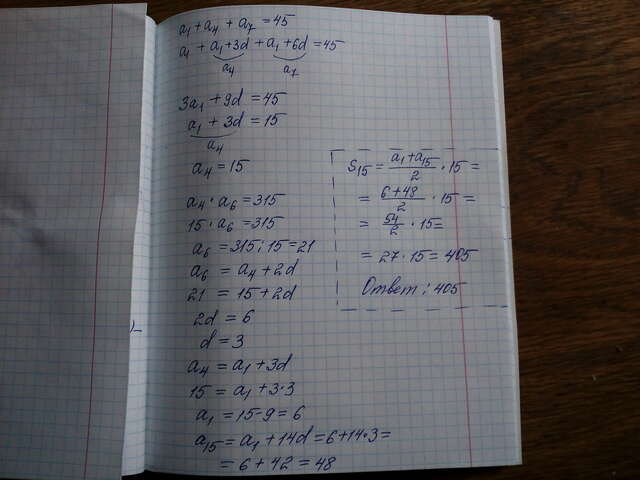 a₁ + a₄ + a₇ = 45
a₁ + a₁+3d + a₁+6d = 45
a₄ a₇
3a₁ + 9d = 45
a₁ + 3d = 15
a₄
a₄ = 15
a₄ · a₆ = 315
15 · a₆ = 315
a₆ = 315 : 15 = 21
a₆ = a₄ + 2d
21 = 15 + 2d
2d = 6
d = 3
a₄ = a₁ + 3d
15 = a₁ + 3·3
a₁ = 15-9 = 6
a₁₅ = a₁ + 14d = 6+14·3 =
= 6 + 42 = 48
S₁₅ = (a₁ + a₁₅)/2 · 15 =
= (6+48)/2 · 15 =
= 54/2 · 15 =
= 27 · 15 = 405
Ответ : 405